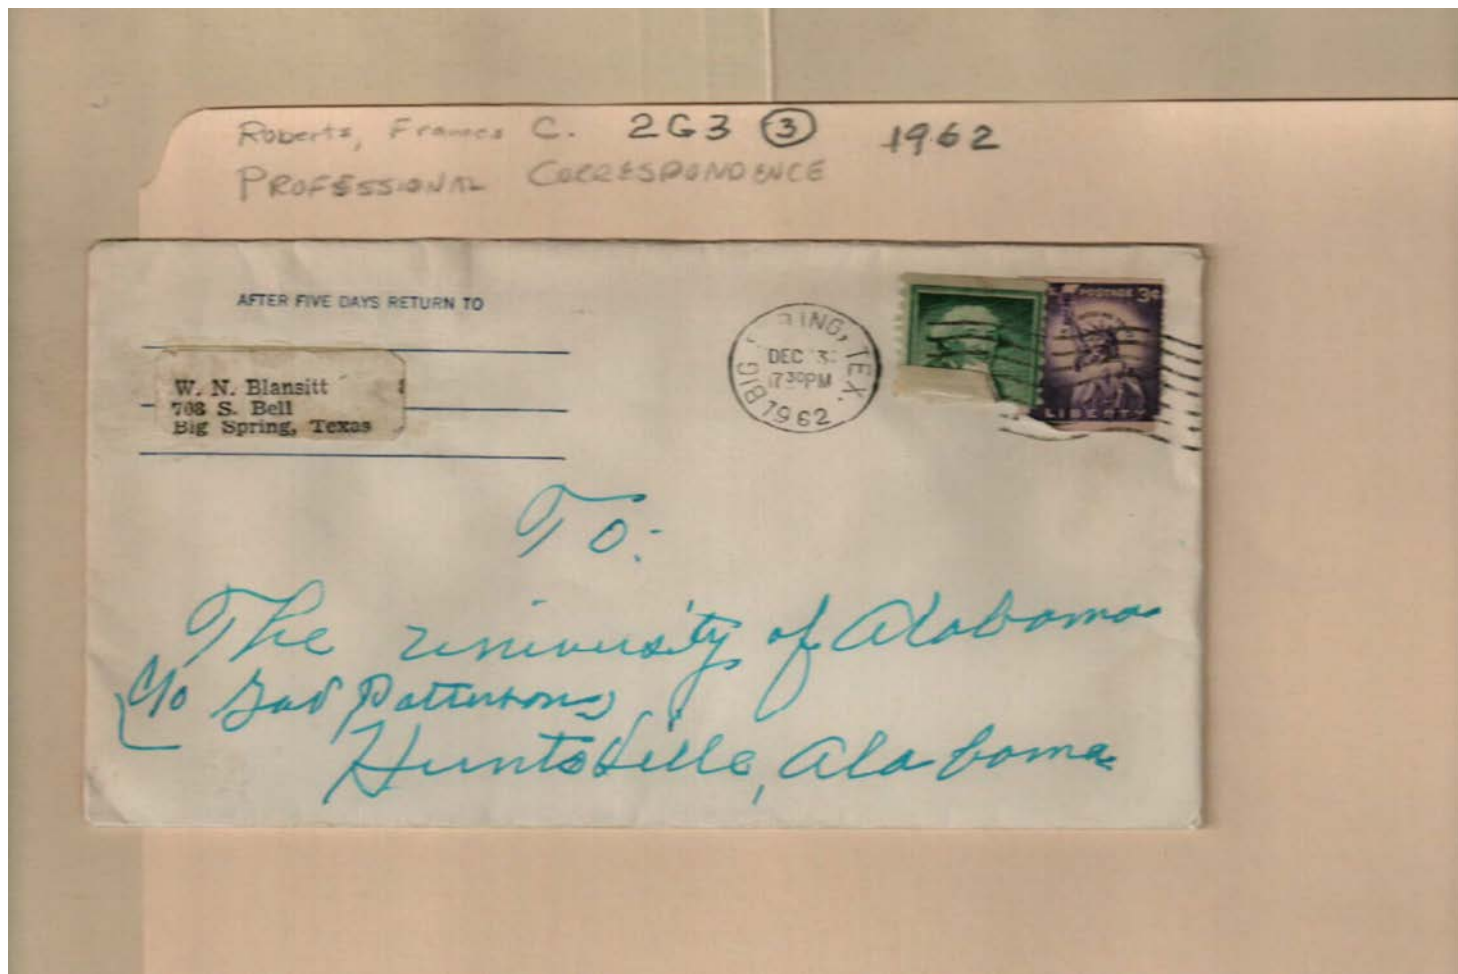 Roberts, Frances C. 2G3 3 1962
PROFESSIONAL CORRESPONDENCE
AFTER FIVE DAYS RETURN TO
W. N. Blansitt
708 S. Bell
Big Spring, Texas
BIG RING, TEX.
DEC 3
730PM
1962
POSTAGE 3¢
LIBERTY
To:
The University of Alabama
c/o Patterson
Huntsville, Alabama